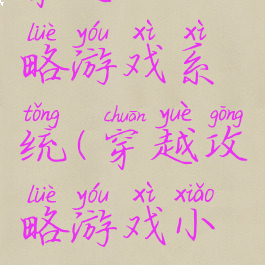 lüè yóu xì xì
略游戏系
tǒng chuān yuè gōng
统(穿越攻
lüè yóu xì xiǎo
略游戏小